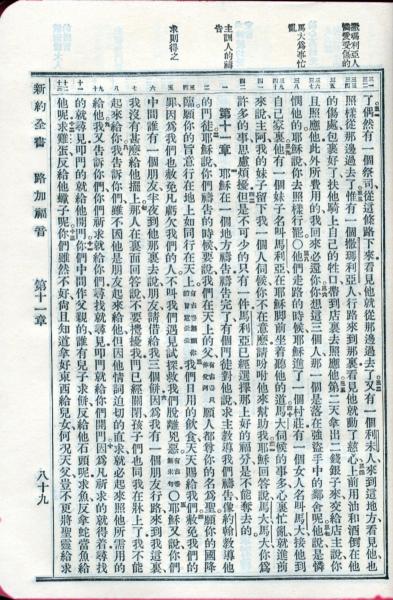 撒瑪利亞人
憐愛受傷的
馬大爲事忙
亂
主訓人的禱
告
求則得之
了偶然有一個祭司從這條路下來看見他就從那邊過去了又有一個利未人來到這地方看見他也
照樣從那邊過去了惟有一個撒瑪利亞人行路來到那裏看見他就動了慈心上前用油和酒倒在他
的傷處包裹好了扶他騎上自己的牲口帶到店裏去照應他第二天拿出二錢銀子來交給店主說你
且照應他此外所費用的我回來必還你你想這三個人那一個是落在強盜手中的鄰舍呢他說是憐
憫他的耶穌說你去照樣行罷〇他們走路的時候耶穌進了一個村莊有一個女人名叫馬大接他到
自己家裏他有一個妹子名叫馬利亞在耶穌脚前坐着聽他的道馬大伺候的事多心裏忙亂就進前
來說主阿我的妹子留下我一個人伺候你不在意麼請吩咐他來幫助我耶穌回答說馬大馬大你爲
許多的事思慮煩擾但是不可少的只有一件馬利亞已經選擇那上好的福分是不能奪去的
第十一章 耶穌在一個地方禱告禱告完了有個門徒對他說求主教導我們禱告像約翰教導他
的門徒耶穌說你們禱告的時候要說我們在天上的父願人都尊你的名爲聖願你的國降
臨願你的旨意行在地上如同行在天上我們日用的飲食天天賜給我們赦免我們的
罪因爲我們也赦免凡虧欠我們的人不叫我們遇見試探救我們脫離兇惡〇耶穌又說你們
中間誰有一個朋友半夜到他那裏去說朋友請借給我三個餅因爲我有一個朋友行路來到我這裏
我沒有甚麼給他擺上那人在裏面回答說不要攪擾我門已經關閉孩子們也同我在牀上了我不能
起來給你我告訴你們雖不因他是朋友起來給他但因他情詞迫切的直求就必起來照他所需用的
給他我又告訴你們你們祈求就給你們尋找就尋見叩門就給你們開門因爲凡祈求的就得着尋找
的就尋見叩門的就給他開門你們中間作父親的誰有兒子求餅反給他石頭呢求魚反拿蛇當魚給
他呢求雞蛋反給他蠍子呢你們雖然不好尚且知道拿好東西給兒女何況天父豈不更將聖靈給求
新約全書 路加福音 第十一章 八十九